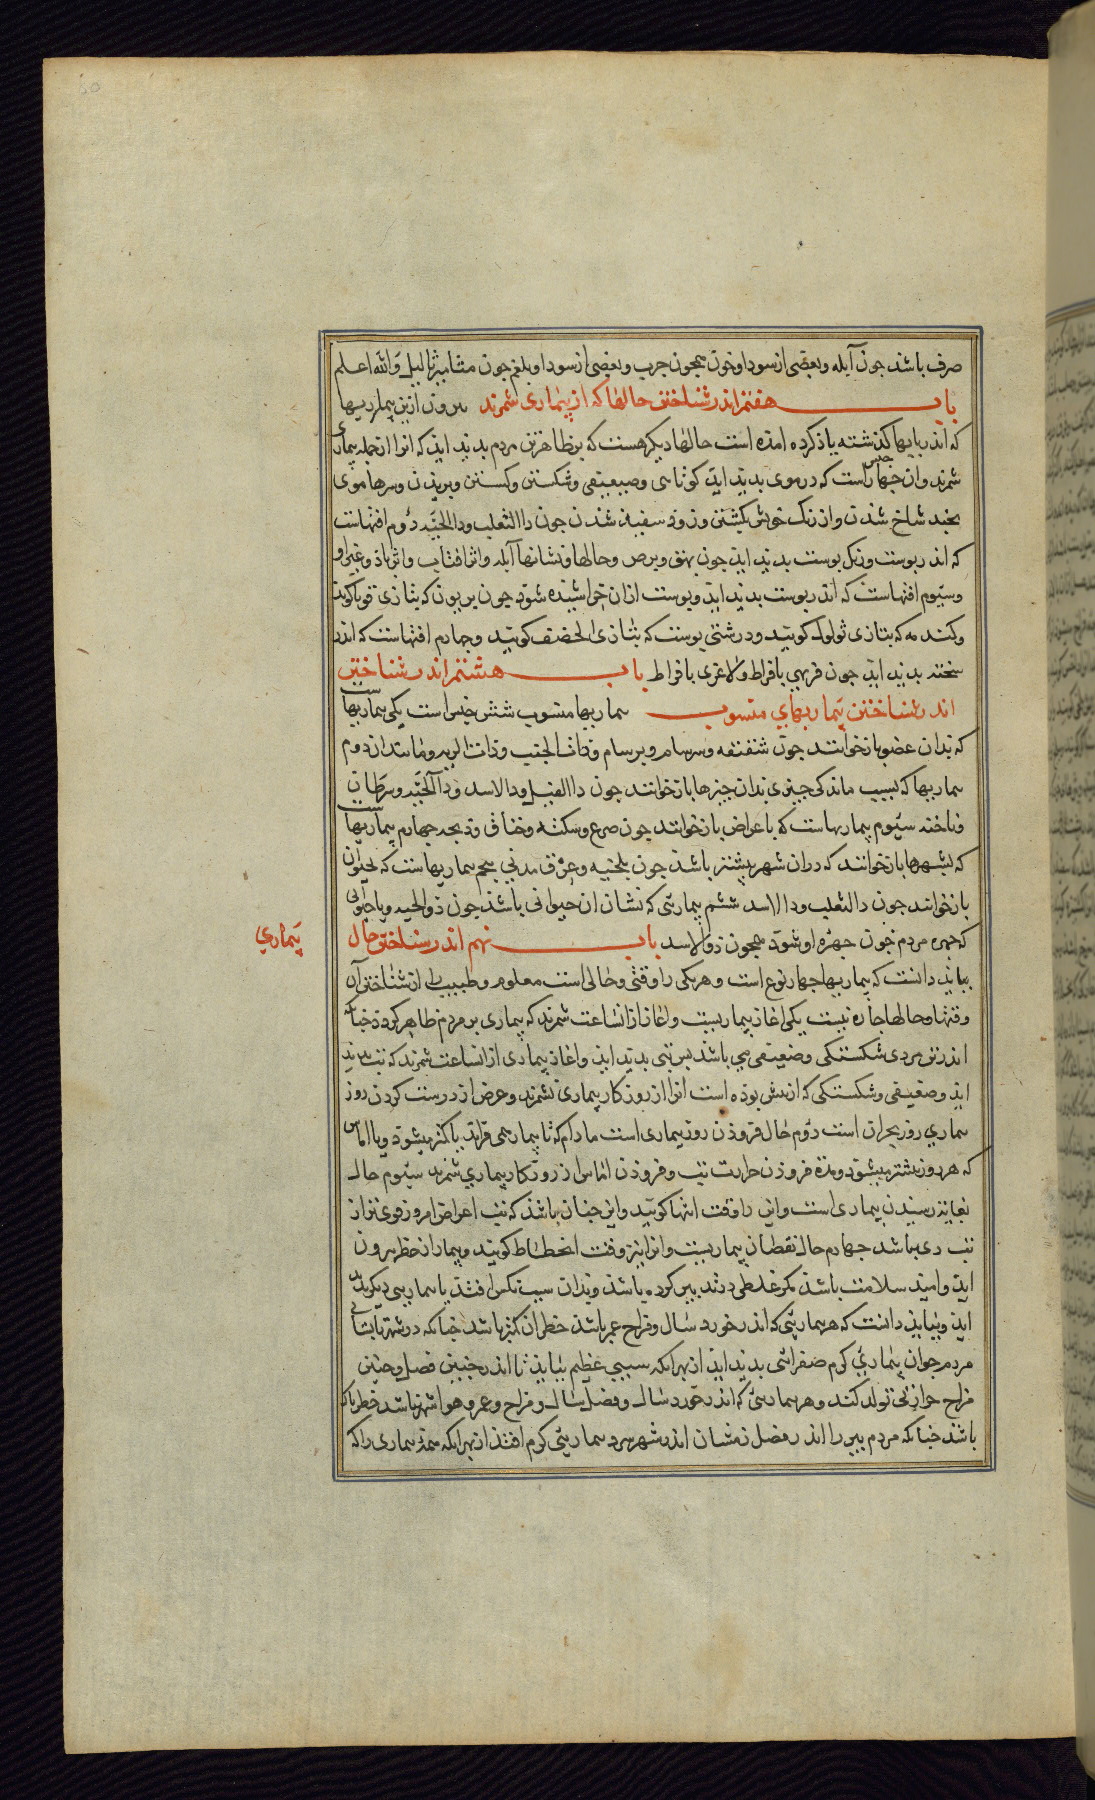 صرف باشد جون آبله وبعضی از سودا وخون همجون جرب وبعضی از سودا وبلغم جون مثامیر ثالیل والله اعلم
باب هفتم اندر شناختن حالها که از بیماری شمرند بیرون ازین بیماریها
که اندر بابها کذشته یاذ کرده امذه است حالها دیکر هست که بر ظاهر تن مردم بدید آید که انرا از جمله بیماری
شمرند وان جهار جنس است که در موی بدید آید کوتاهی وضعیفی وشکستن وکسستن وبریدن وسرها موی
بجند شاخ شدن واز رنک خویش بکشتن وزود سفید شدن جون داالثعلب وداالحیه دوم افتهاست
که اندر بوست ورنک بوست بدید آید جون بهق وبرص وخالها ونشانها آبله واثر افتاب واثر باذ وغیر او
وسیوم افتهاست که اندر بوست بدید آید وبوست ازان خراشیده شود جون بریون که بتازی قوبا کویند
وکندمه که بتازی ثولول کویند ودرشتی بوست که بتازی الحصف کویند وجهارم افتهاست که اندر
سخنه بدید آید جون فربهی بافراط ولاغری بافراط باب هشتم اندر شناختن
اندر شناختن بیماریهای منسوب بیماریها منسوب شش جنس است یکی بیماریهاست
که بدان عضو بازخوانند جون شقیقه وسرسام وبرسام وذات الجنب وذات الریه ومانند ان دوم
بیماریها که بسبب مانندکی جیزی بدان جیزها بازخوانند جون داالفیل وداالاسد وداالحیه وسرطان
وناخنه سیوم بیماریهاست که باعراض بازخوانند جون صرع وسکته وخناق وذبحه جهارم بیماریهاست
که بشهرها بازخوانند که دران شهر بیشتر باشد جون بلخیه وعرق مدنی بنجم بیماریهاست که بحیوان
بازخوانند جون داالثعلب وداالاسد ششم بیماریی که نشان ان حیوانی باشد جون ذوالحیه ویا حیوانی
که جهره مردم جون جهره او شود همجون ذوالاسد باب نهم اندر شناختن حال
بیماری
بباید دانست که بیماریها جهار نوع است وهر یکی را وقتی وحالی است معلوم وطبیب را از شناختن آن
وقتها وحالها جاره نیست یکی اغاز بیماریست واغاز از انساعت شمرند که بیماری بر مردم ظاهر کردد جنانکه
اندر تن مردی شکستکی وضعیفی می باشد بس تبی بدید آید واغاز بیماری از انساعت شمرند که تب بدید
آید وضعیفی وشکستکی که از بیش بوده است انرا از روزکار بیماری نشمرند وغرض از درست کردن روز
بیماری روز بحران است دوم حال فزودن روز بیماری است مادام که تا بیماری همی فزاید یا کمتر میشود ویا اماس
که هر روز بیشتر میشود ومدة فزودن حرارت تب وفزودن اماس از روزکار بیماری شمرند سیوم حال
بغایة رسیدن بیماری است واین را وقت انتها کویند واین جنان باشد که تب اعراض امروز قوی تر از
تب دی باشد جهارم حال نقصان بیماریست وانرا نیز وقت انحطاط کویند وبیمار از خطر بیرون
آید وامید سلامت باشد مکر غلطی در تدبیر کرده باشد وبدان سبب نکس افتد یا بیماریی دیکر بدید
آید وبباید دانست که هر بیماریی که اندر خورد سال ومزاج عمر باشد خطر ان کمتر باشد جنانکه در شهر تابستانی
مردم جوان بیماری کرم صفرائی بدید آید از بهر انکه سببی عظیم نباید تا اندر جنین فصل وجنین
مزاج حرارتی تولد کند وهر بیماریی که اندر خورد سال وفصل سال ومزاج وعمر وهوا شهر نباشد خطرناک
باشد جنانکه مردم بیر را اندر فصل زمستان اندر شهر سرد بیماریی کرم افتد از بهر انکه بیماری را که